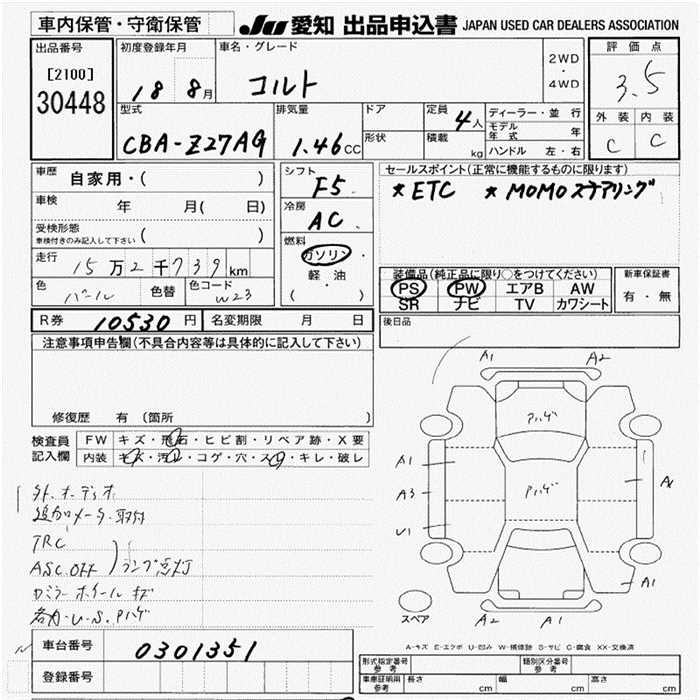 車内保管・守衛保管
JU 愛知 出品申込書 JAPAN USED CAR DEALERS ASSOCIATION
出品番号
[2100]
30448
初度登録年月
18 8月
車名・グレード
コルト
2WD
・
4WD
評価点
3.5
外装 内装
C C
型式
CBA-Z27AG
排気量
1.46cc
ドア
形状
定員 4人
積載 kg
ディーラー・並行
モデル年式 年
ハンドル 左・右
車歴 自家用・( )
車検 年 月( 日)
受検形態
車検付きのみ記入して下さい ( )
走行 15万2千739km
色 パール 色替 色コード W23
シフト
F5
冷房
AC
燃料
ガソリン
軽・油
( )
セールスポイント(正常に機能するものに限ります)
*ETC *MOMOステアリング
装備品(純正品に限り○をつけてください)
PS PW エアB AW
SR ナビ TV カワシート
新車保証書
有・無
R券 10530円 名変期限 月 日
後日品
注意事項申告欄(不具合内容等は具体的に記入して下さい)
修復歴 有 (箇所 )
検査員記入欄
FW キズ・飛石・ヒビ割・リペア跡・X要
内装 キズ・汚レ・コゲ・穴・スレ・キレ・破レ
外.オーディオ
追加メーター取付
TRC
ASC OFF ランプ点灯
アルミホイールキズ
A1 A2
アハゲ
A1
A3
U1
アハゲ
A1
スペア
A2 A1
A-キズ E-エクボ U-凹み W-補修跡 S-サビ C-腐食 XX-交換済
車台番号 0301351
登録番号
形式指定番号
参考
類別区分番号
参考
車庫証明用
参考
長さ cm 幅 cm 高さ cm